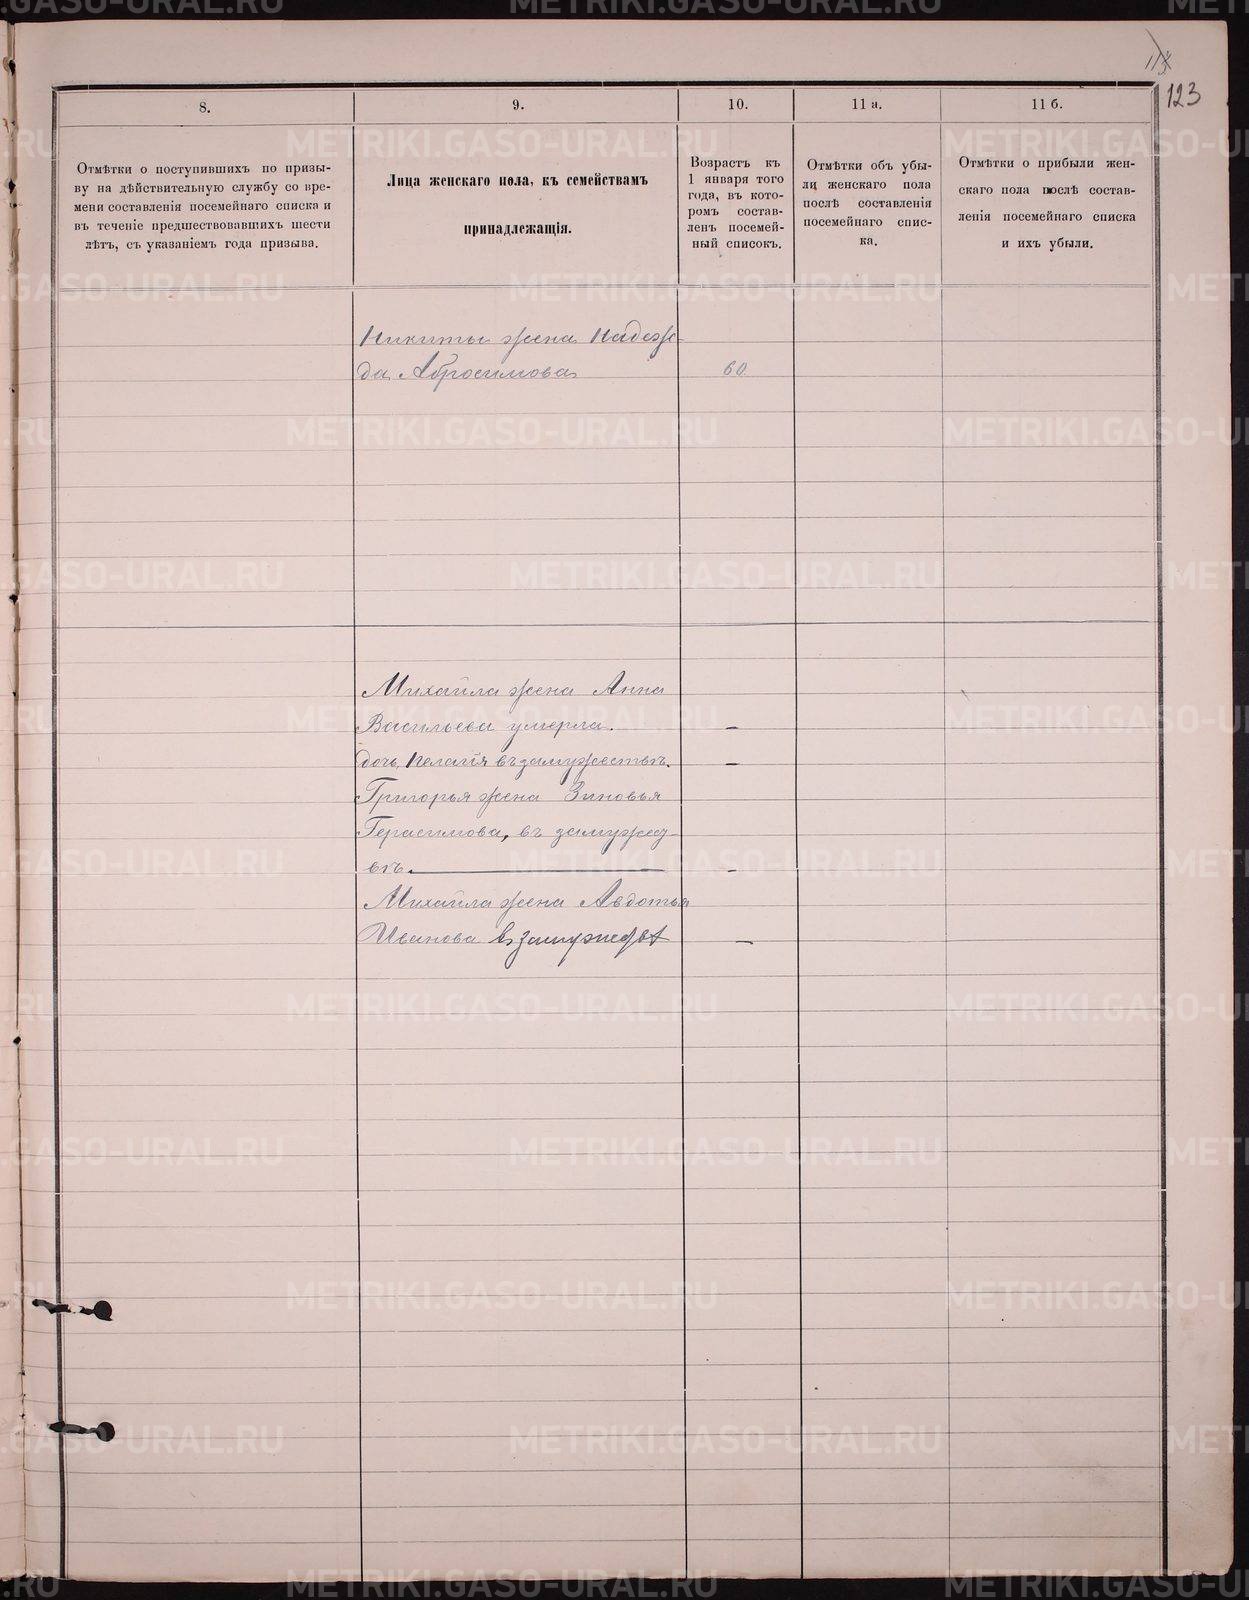 123
8.
9.
10.
11 а.
11 б.
Отмѣтки о поступившихъ по призы-
ву на дѣйствительную службу со вре-
мени составленія посемейнаго списка и
въ теченіе предшествовавшихъ шести
лѣтъ, съ указаніемъ года призыва.
Лица женскаго пола, къ семействамъ
принадлежащія.
Возрастъ къ
1 января того
года, въ кото-
ромъ состав-
ленъ посемей-
ный списокъ.
Отмѣтки объ убы-
ли женскаго пола
послѣ составленія
посемейнаго спис-
ка.
Отмѣтки о прибыли жен-
скаго пола послѣ состав-
ленія посемейнаго списка
и ихъ убыли.
Никиты жена Надеж-
да Абросимова 60
Михайла жена Анна
Васильева умерла. –
дочь Пелагія въ замужествѣ. –
Григорья жена Зиновья
Герасимова, въ замужес-
вѣ. –
Михайла жена Авдотья
Иванова въ замужеств –
METRIKI.GASO-URAL.RU